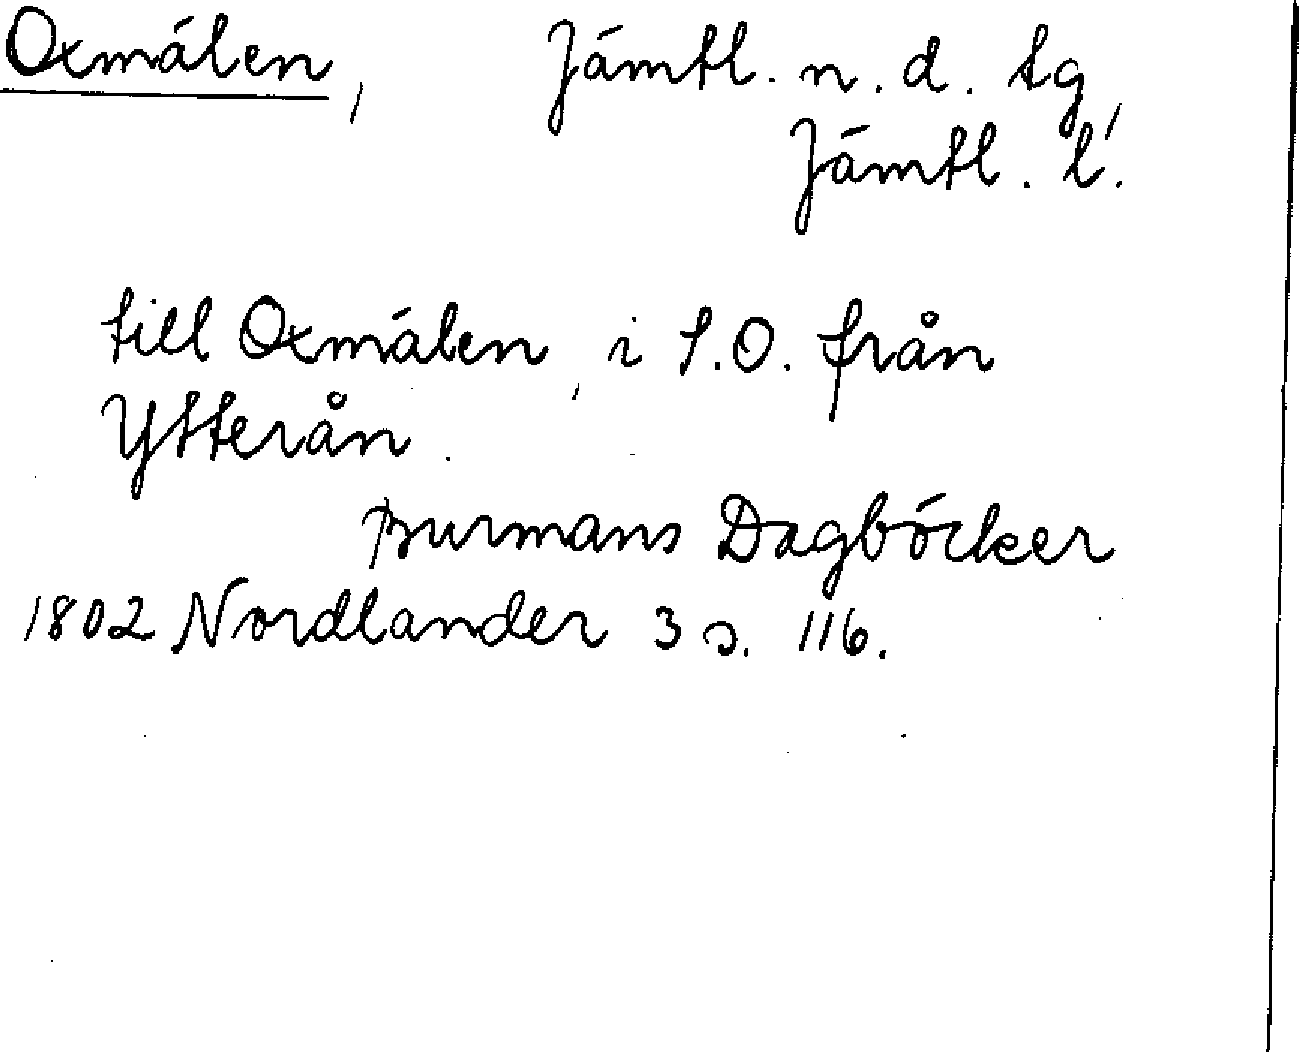 Oxmälen, Jämtl. n. d. tg,
Jämtl. l.
till Oxmälen, i S.O. från
Ytterån.
Burmans Dagböcker
1802 Nordlander 3 s. 116.